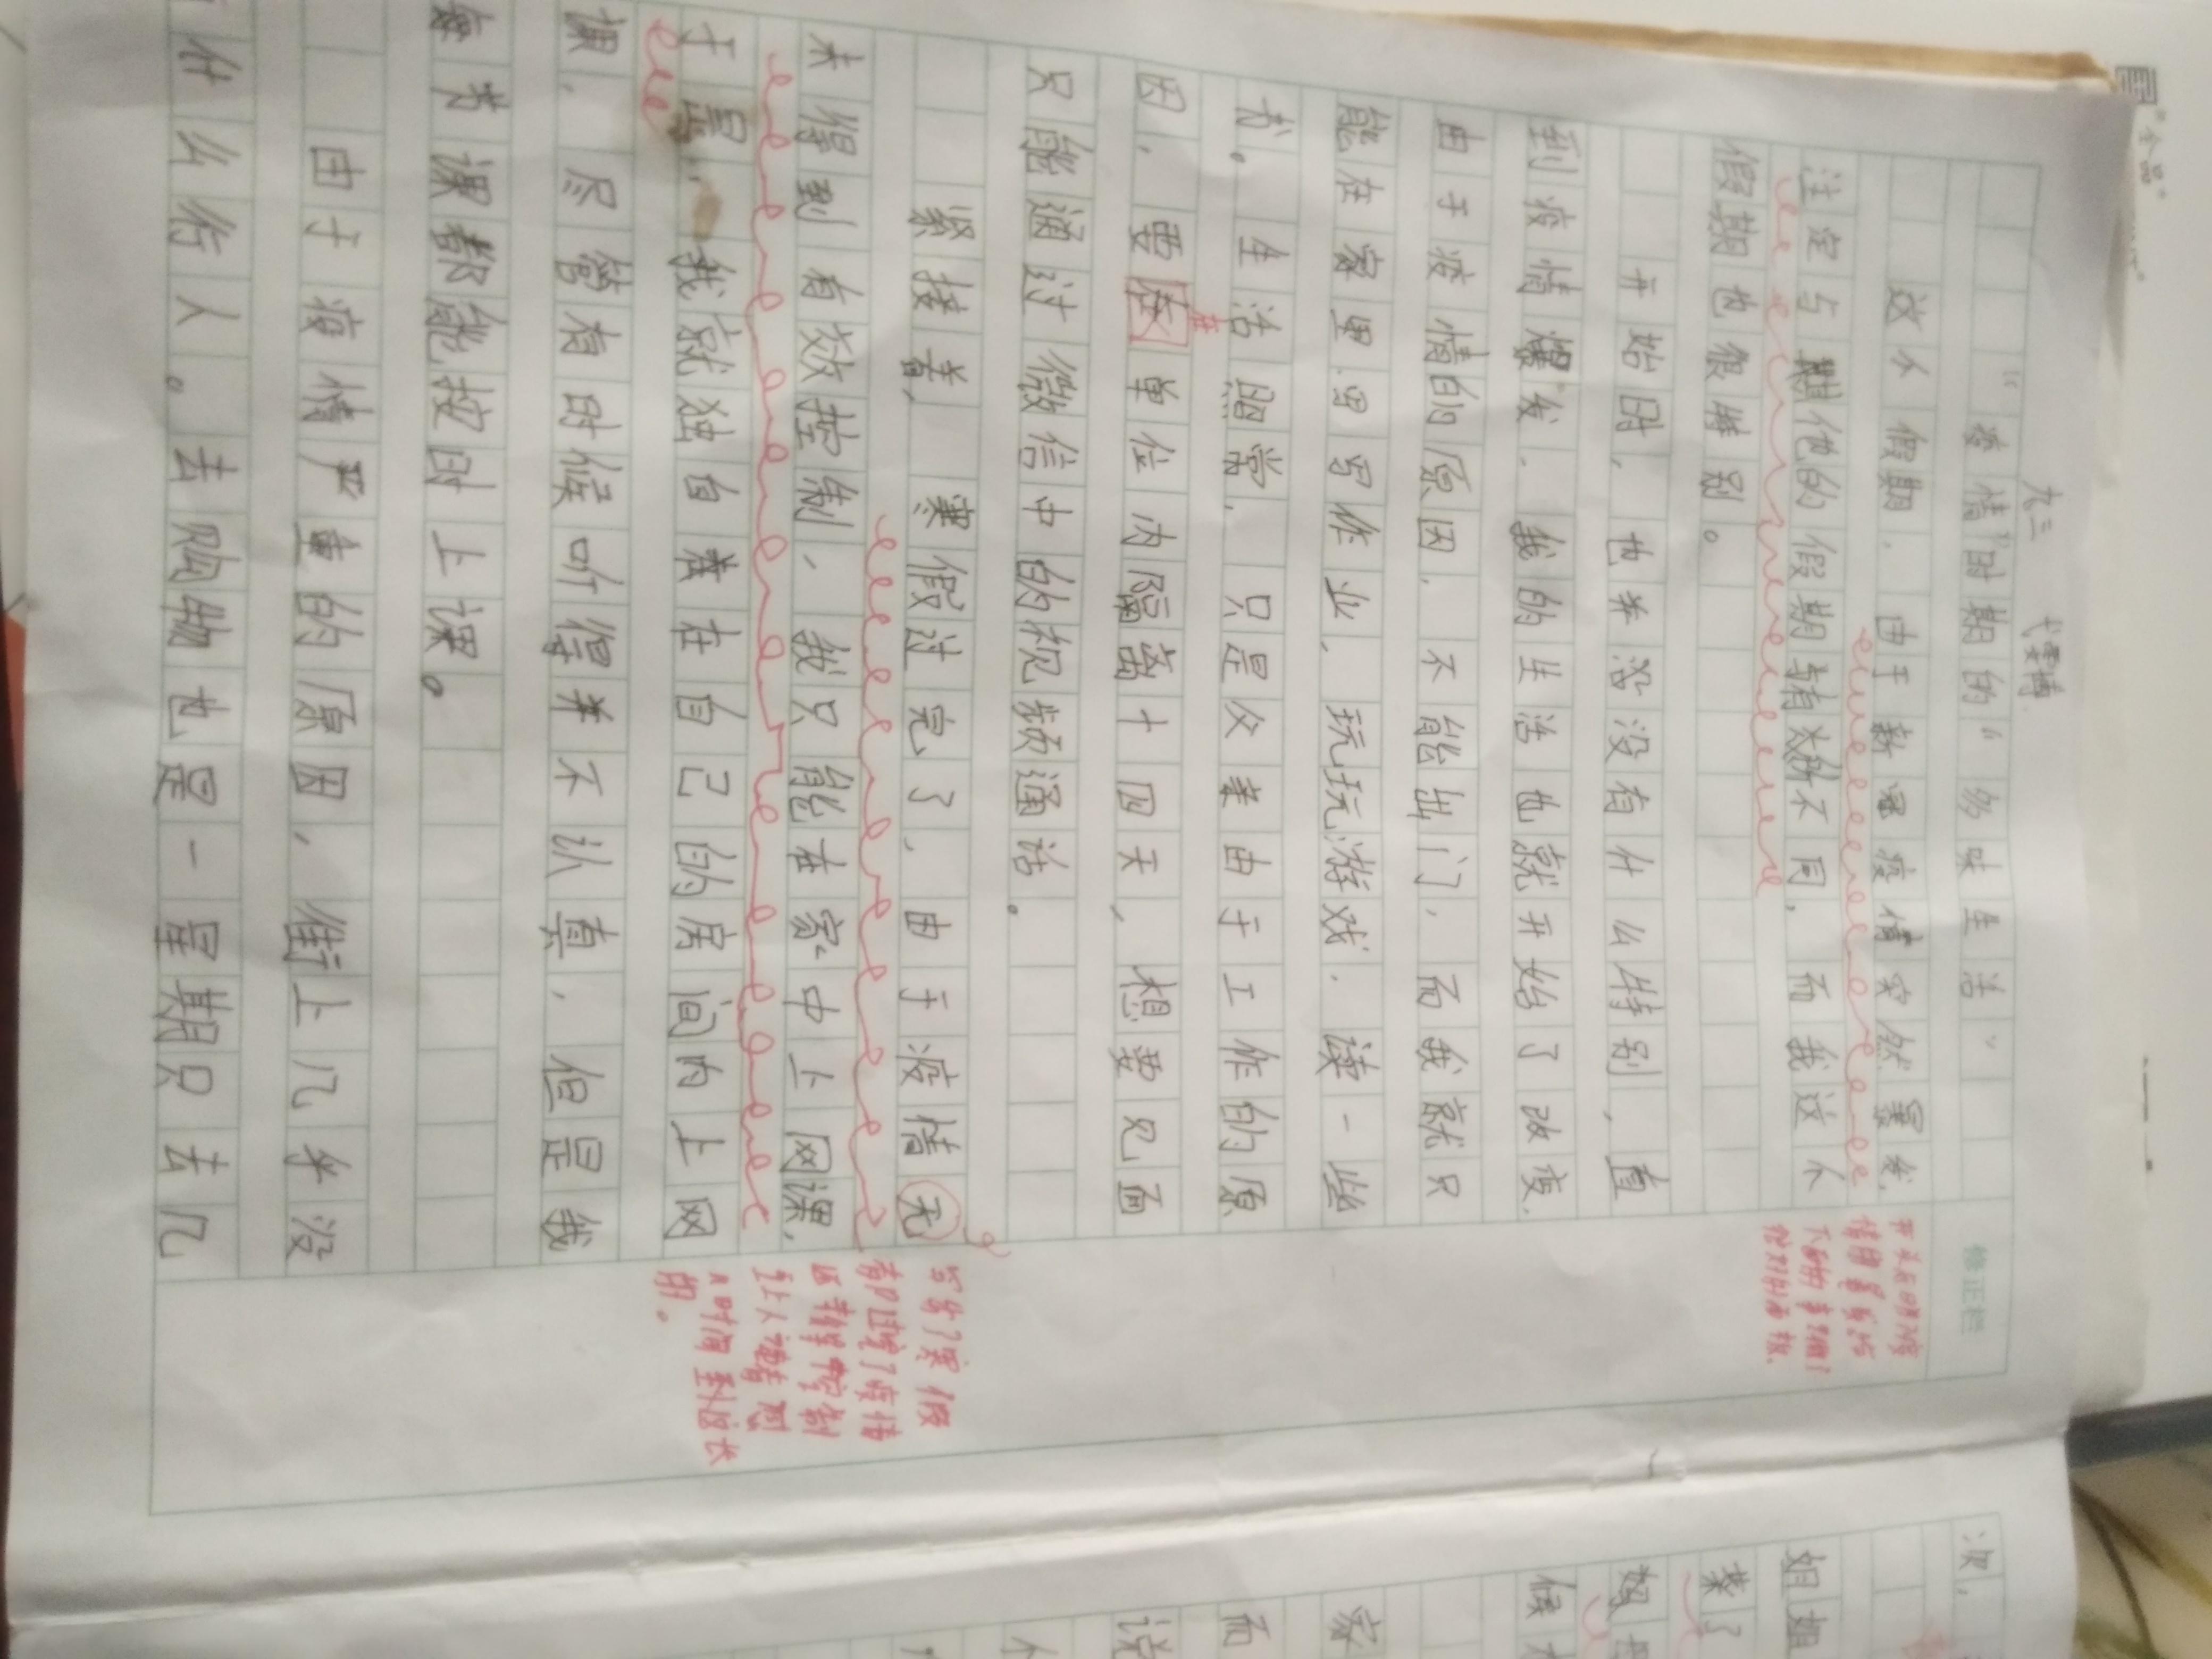 九三
"疫情"时期的"多味生活"
这个假期，由于新冠疫情突然暴发，
注定与其他的假期有所不同，而我这个
假期也很特别。
开始时，也并没有什么特别，直
到疫情爆发，我的生活也就开始了改变，
由于疫情的原因，不能出门，而我就只
能在家里写写作业，玩玩游戏，读一些
书。生活照常，只是父亲由于工作的原
因，要在单位内隔离十四天，想要见面
只能通过微信中的视频通话。
紧接着，寒假过完了，由于疫情无
未得到有效控制，我只能在家中上网课，
于是，我就独自待在自己的房间内上网
课，尽管有时候听得并不认真，但是我
每节课都能按时上课。
由于疫情严重的原因，街上几乎没
什么行人。去购物也是一星期只去几
修正栏
写出了寒假
次，
姐姐
家
而
说
个